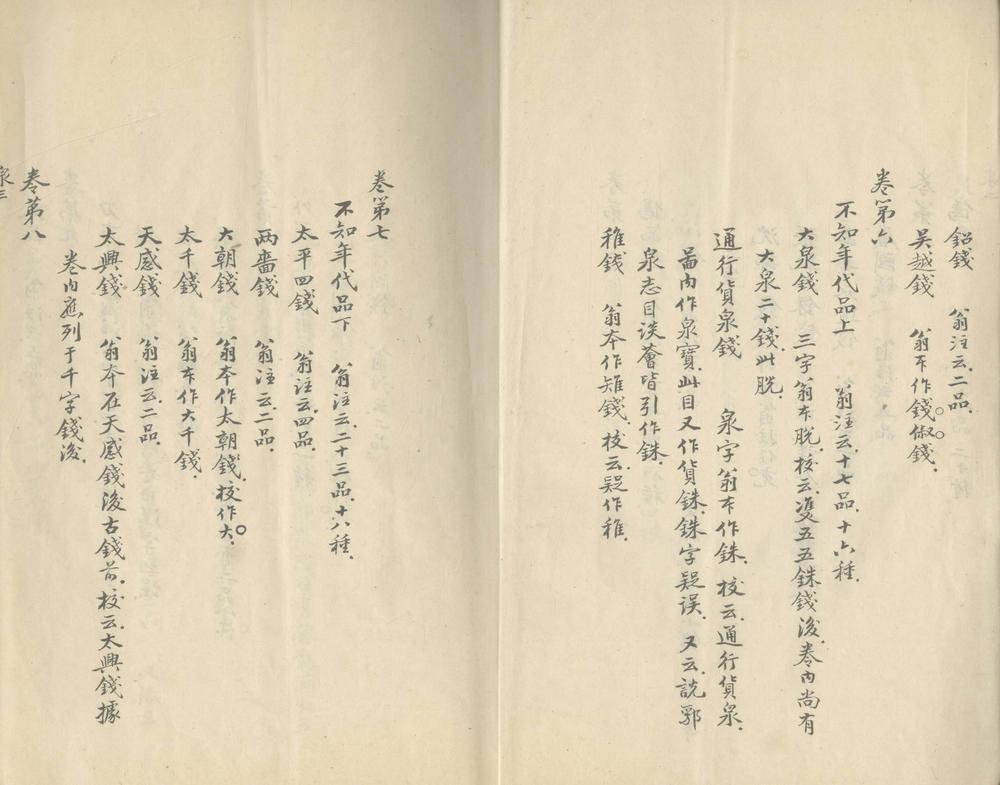 鉛錢　翁注云二品.
吳越錢　翁本作錢俶錢.
卷第六
不知年代品上　翁注云.十七品.十六種.
大泉錢　三字翁本脫.校云.在五五銖錢後.卷內尚有
大泉二十錢.此脫.
通行貨泉錢　泉字翁本作銖.校云.通行貨泉.
圖內作泉寶.此目又作貨銖.銖字疑误.又云.說郛
泉志目談薈皆引作銖.
稚錢　翁本作雉錢.校云.疑作稚.
卷第七
不知年代品下　翁注云.二十三品.十八種.
太平四錢　翁注云.四品.
两甾錢　翁注云.二品.
大朝錢　翁本作太朝錢.校作大.
太千錢　翁本作大千錢.
天感錢　翁注云.二品.
太興錢　翁本在天感錢後古錢前.校云.太興錢據
卷內應列于千字錢後.
卷第八
泉三